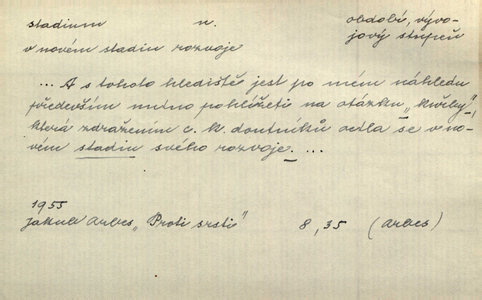 stadium n. období, vývo-
jový stupeň
v novém stadiu rozvoje
... A s tohoto hlediště jest po mém náhledu
především nutno pohlížeti na otázku „kuřby“,
která zdražením c. k. doutníků octla se v no-
vém stadiu svého rozvoje. ...
1955
Jakub Arbes „Proti srsti“ 8, 35 (Arbes)